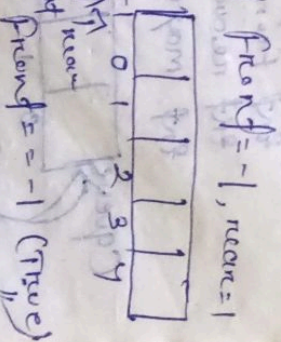 front=-1, rear=1
-1 0 1 2 3 4
rear
front == -1 (True)